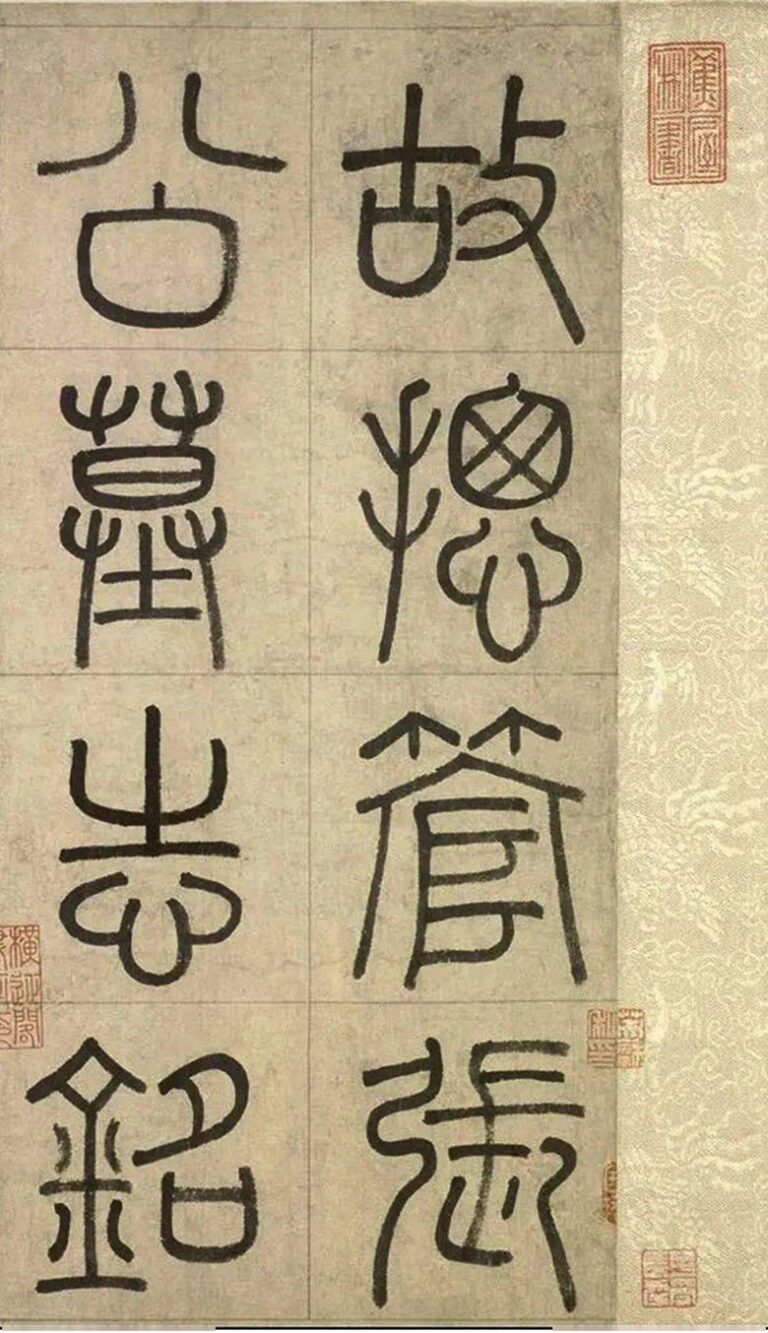 故摠管張
公墓志銘